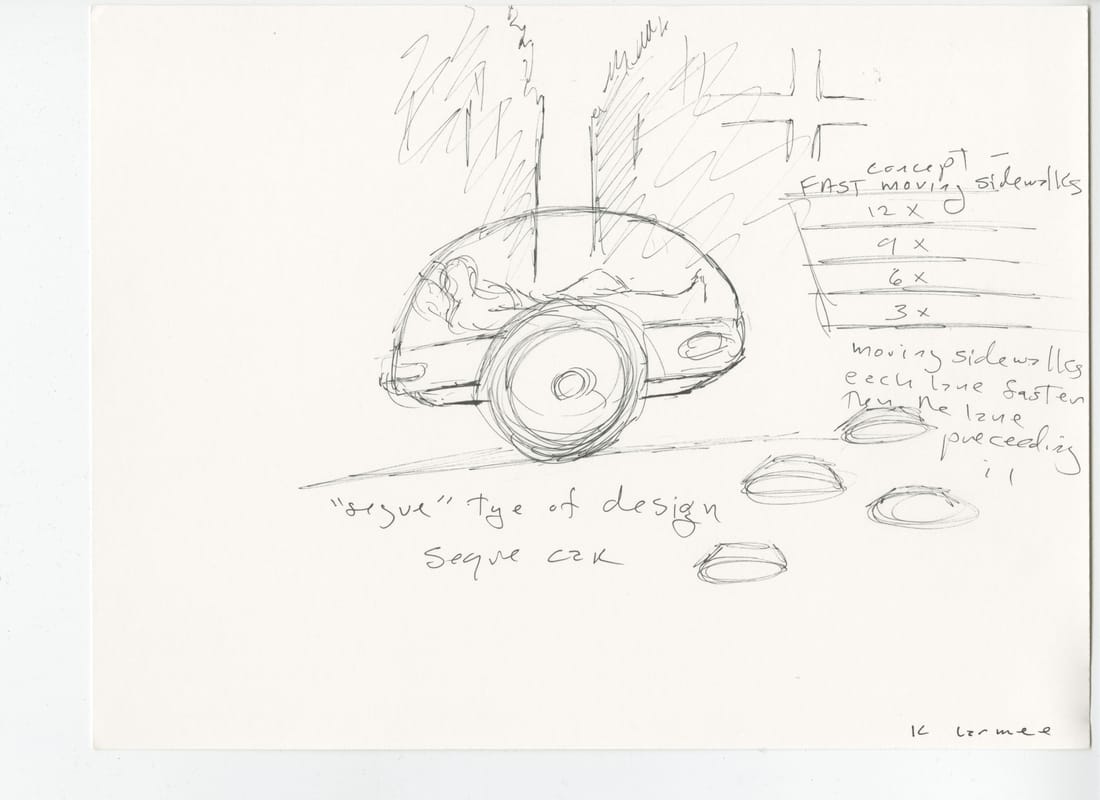 concept -
FAST moving sidewalks
12 x
9 x
6 x
3 x
moving sidewalks
each lane faster
then the lane
preceeding
it
"segue" tye of design
segue car
K Larmee